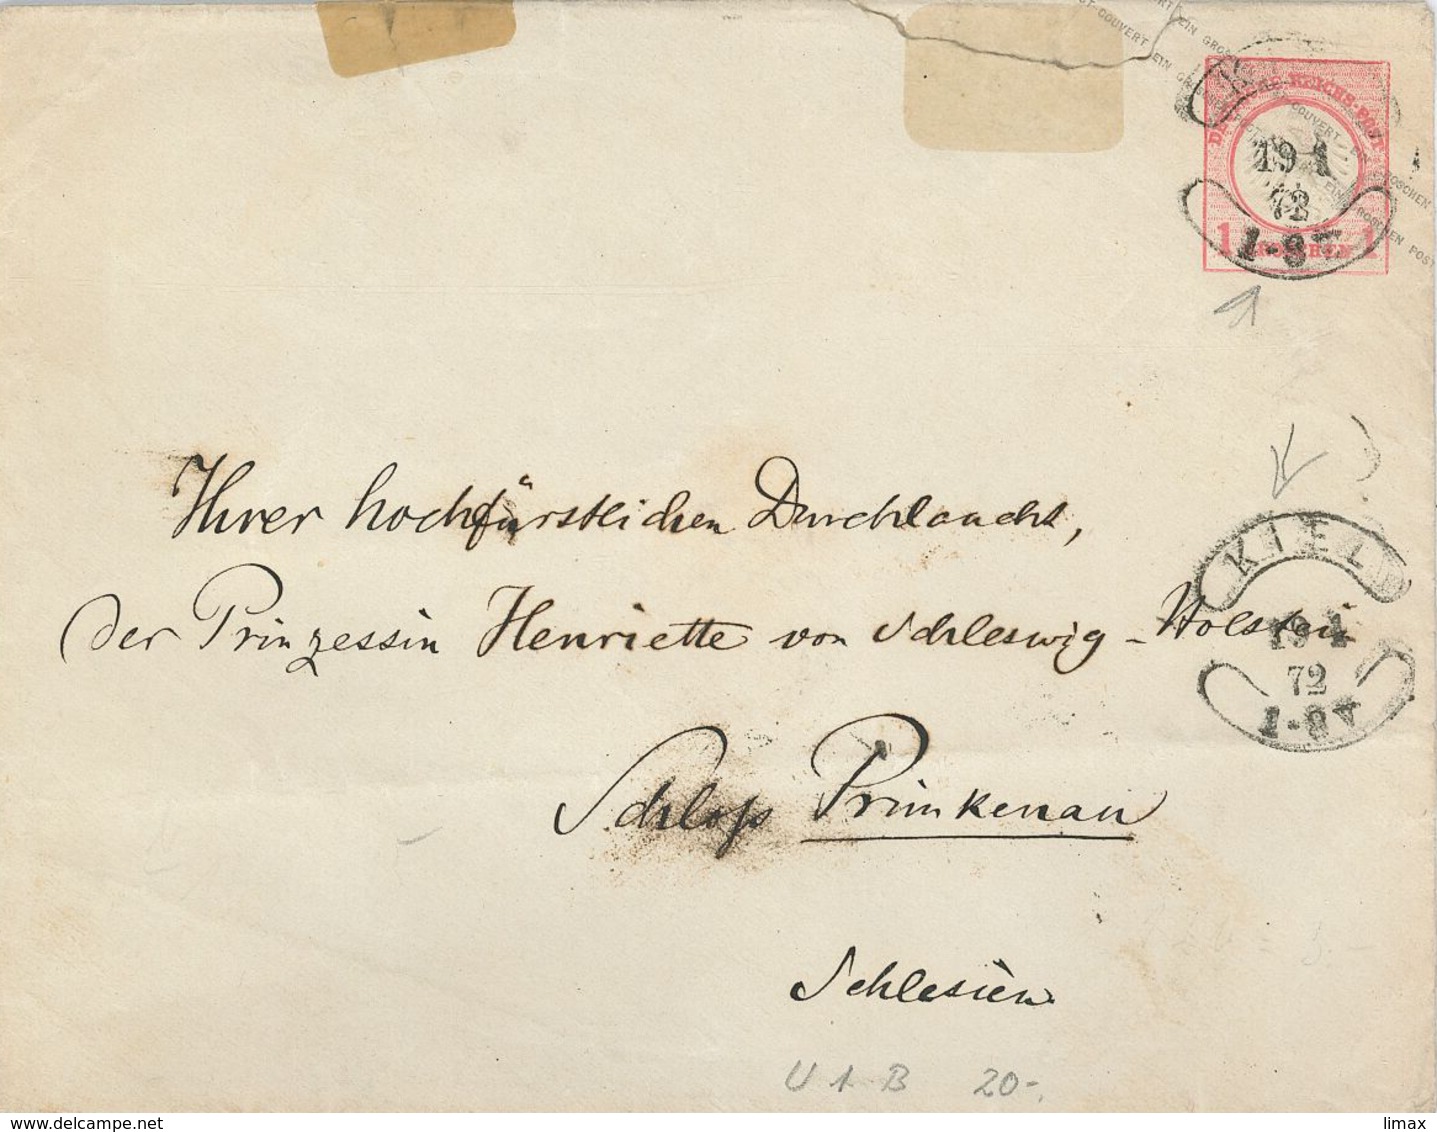 POST-COUVERT EIN GROSCHEN
DEUTSCHE REICHS-POST
19 1
72
1-8
1 GROSCHEN 1
Ihrer hochfürstlichen Durchlaucht,
der Prinzessin Henriette von Schleswig-Holstein
Schloß Primkenau
Schlesien
KIEL
19 1
72
1-8
U 1 B 20-.
limax